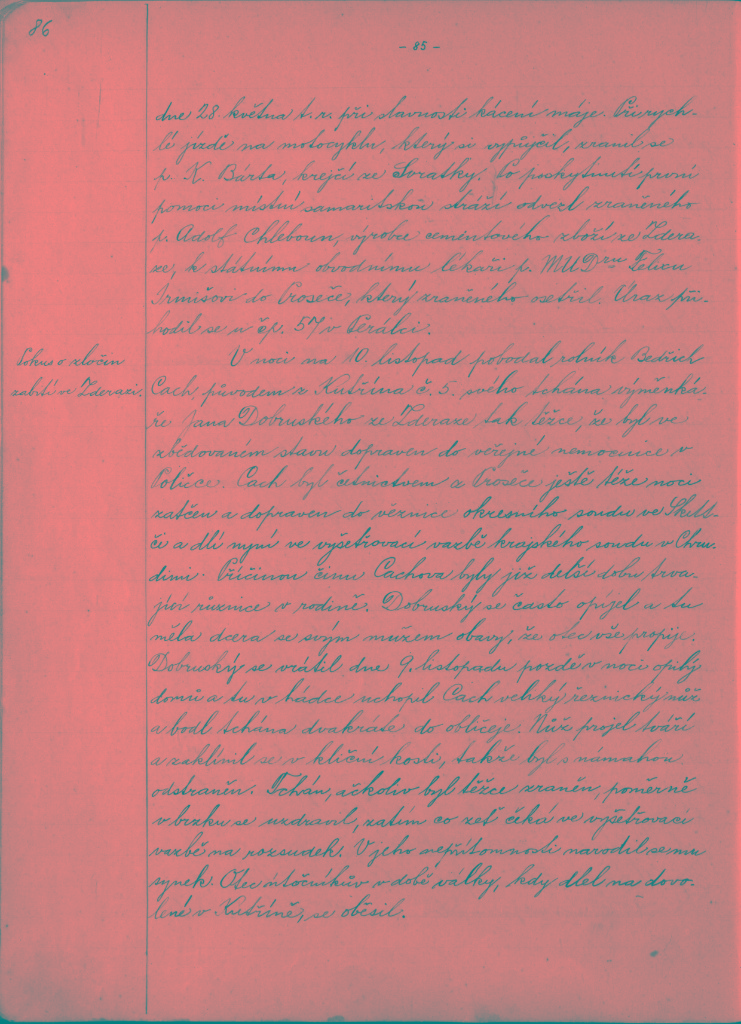 86
- 85 -
dne 28. května t. r. při slavnosti kácení máje. Při rych-
lé jízdě na motocyklu, který si vypůjčil, zranil se
p. K. Bárta, krejčí ze Svratky. Po poskytnutí první
pomoci místní samaritskou stráží odvezl zraněného
p. Adolf Chleboun, výrobce cementového zboží ze Zdera-
ze, k státnímu obvodnímu lékaři p. MUDru Felixu
Irmišovi do Proseče, který zraněného ošetřil. Úraz při-
hodil se u čp. 57 v Perálci.
Pokus o zločin
zabití ve Zderazi.
V noci na 10. listopad pobodal rolník Bedřich
Cach původem z Kutřína č. 5. svého tchána výměnká-
ře Jana Dobruského ze Zderaze tak těžce, že byl ve
zbědovaném stavu dopraven do veřejné nemocnice v
Poličce. Cach byl četnictvem z Proseče ještě téže noci
zatčen a dopraven do věznice okresního soudu ve Skut-
či a dlí nyní ve vyšetřovací vazbě krajského soudu v Chru-
dimi. Příčinou činu Cachova byly již delší dobu trva-
jící různice v rodině. Dobruský se často opíjel a tu
měla dcera se svým mužem obavy, že otec vše propije.
Dobruský se vrátil dne 9. listopadu pozdě v noci opilý
domů a tu v hádce uchopil Cach velký řeznický nůž
a bodl tchána dvakráte do obličeje. Nůž projel tváří
a zaklínil se v klíční kosti, takže byl s námahou
odstraněn. Tchán, ačkoliv byl těžce zraněn, poměrně
v brzku se uzdravil, zatím co zeť čeká ve vyšetřovací
vazbě na rozsudek. V jeho nepřítomnosti narodil se mu
synek. Otec útočníkův v době války, kdy dlel na dovo-
lené v Kutříně, se oběsil.